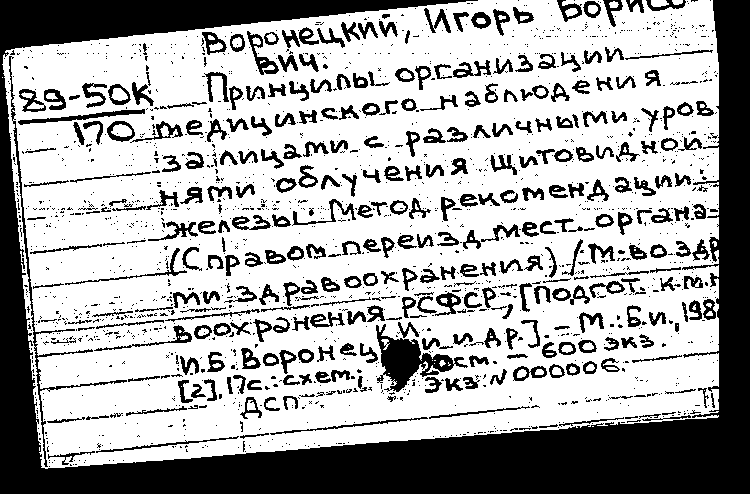 Воронецкий, Игорь Борисо-
вич.
89-50К
170
Принципы организации
медицинского наблюдения
за лицами с различными уров-
нями облучения щитовидной
железы: Метод. рекомендации:
(С правом переизд. мест. органа-
ми здравоохранения) / М-во здра-
воохранения РСФСР; [Подгот. к.м.н.
И.Б. Воронецкий и др.]. – М.: Б.и., 1988
[2], 17 с.: схем.; 20 см. – 600 экз.
Экз. N 000006.
ДСП